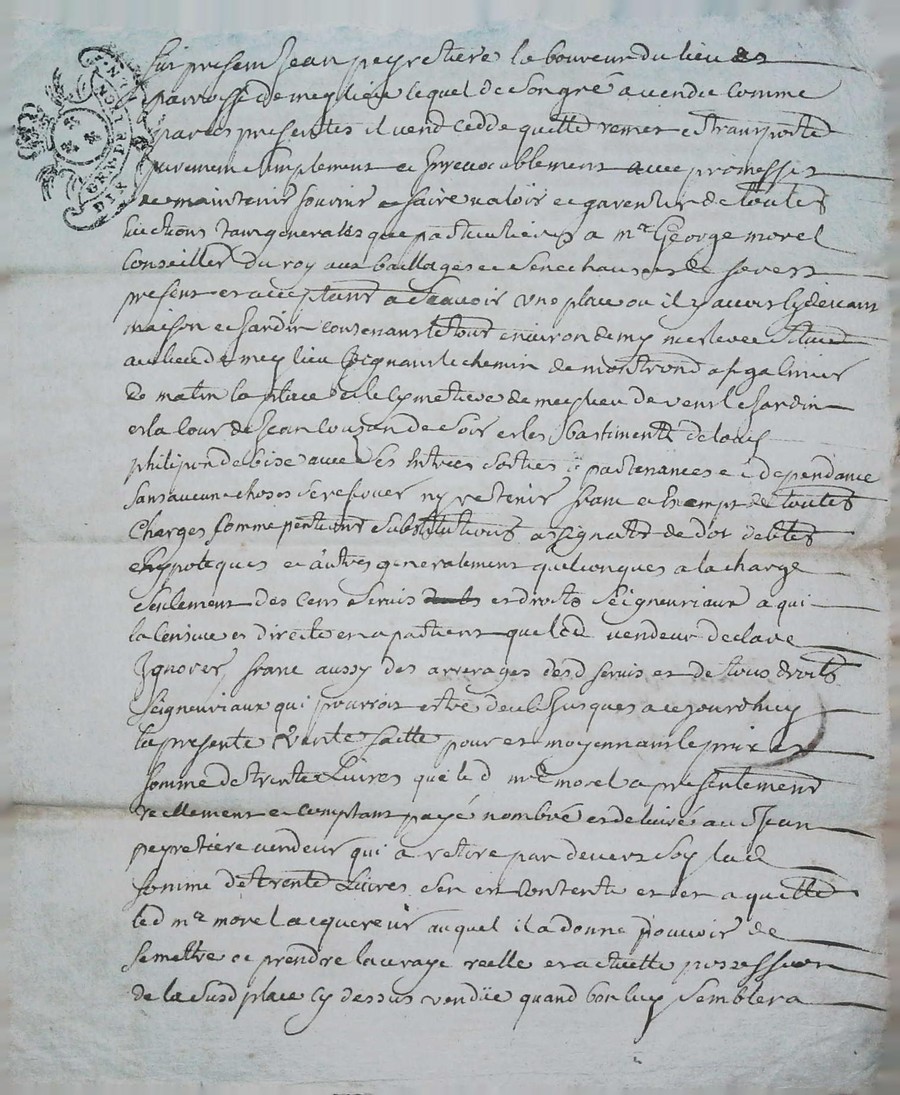 GEN. DE LION
DIX DEN
fut present Jean peyretiere laboureur du lieu et
parroisse de meylieu lequel de son gré a vendu comme
par ces presentes il vend cedde quitte remet et transporte
purement simplement et Irrevocablement avec promesses
de maintenir fournir et faire valoir et garentir de toutes
evictions tant generales que particulieres a mr George morel
Conseiller du roy aux bailliages et senechaussée de forest
present et acceptant a Scavoir une place ou il y avoit cy devant
maison et Jardin contenant le tout environ demy
au lieu de meylieu Joignant le chemin de montrond a st galmier
de matin la place et le cymetiere de meylieu de vent le Jardin
et la cour de Jean de soir et les bastiments de louis
philipon de bise avec ses Entrées sorties apartenances et dependance
sans aucune choses se reserver ny retenir franc et Exempt de toutes
Charges comme pentions Substitutions assignatts de dot debtes
et autres generalement quelconques a la charge
seulement des cens servis et droits seigneuriaux a qui
la censive et directe en apartient que led vendeur declare
Ignorer, franc aussy des arrerages desd servis et de tous droits
seigneuriaux qui pourroit estre deub Jusques a ce jourdhuy
la presente vente faitte pour et moyennant le prix et
somme de trente Livres que led mr morel a presentement
reellement et comptant payé nombré et delivré aud Jean
peyretiere vendeur qui a retiré par devers soy lad
somme de trente Livres sen est contenté et en a quitté
led mr morel acquereur auquel il a donné pouvoir de
se mettre et prendre la vraye reelle et actuelle possession
de la susd place cy dessus vendüe quand bon luy semblera